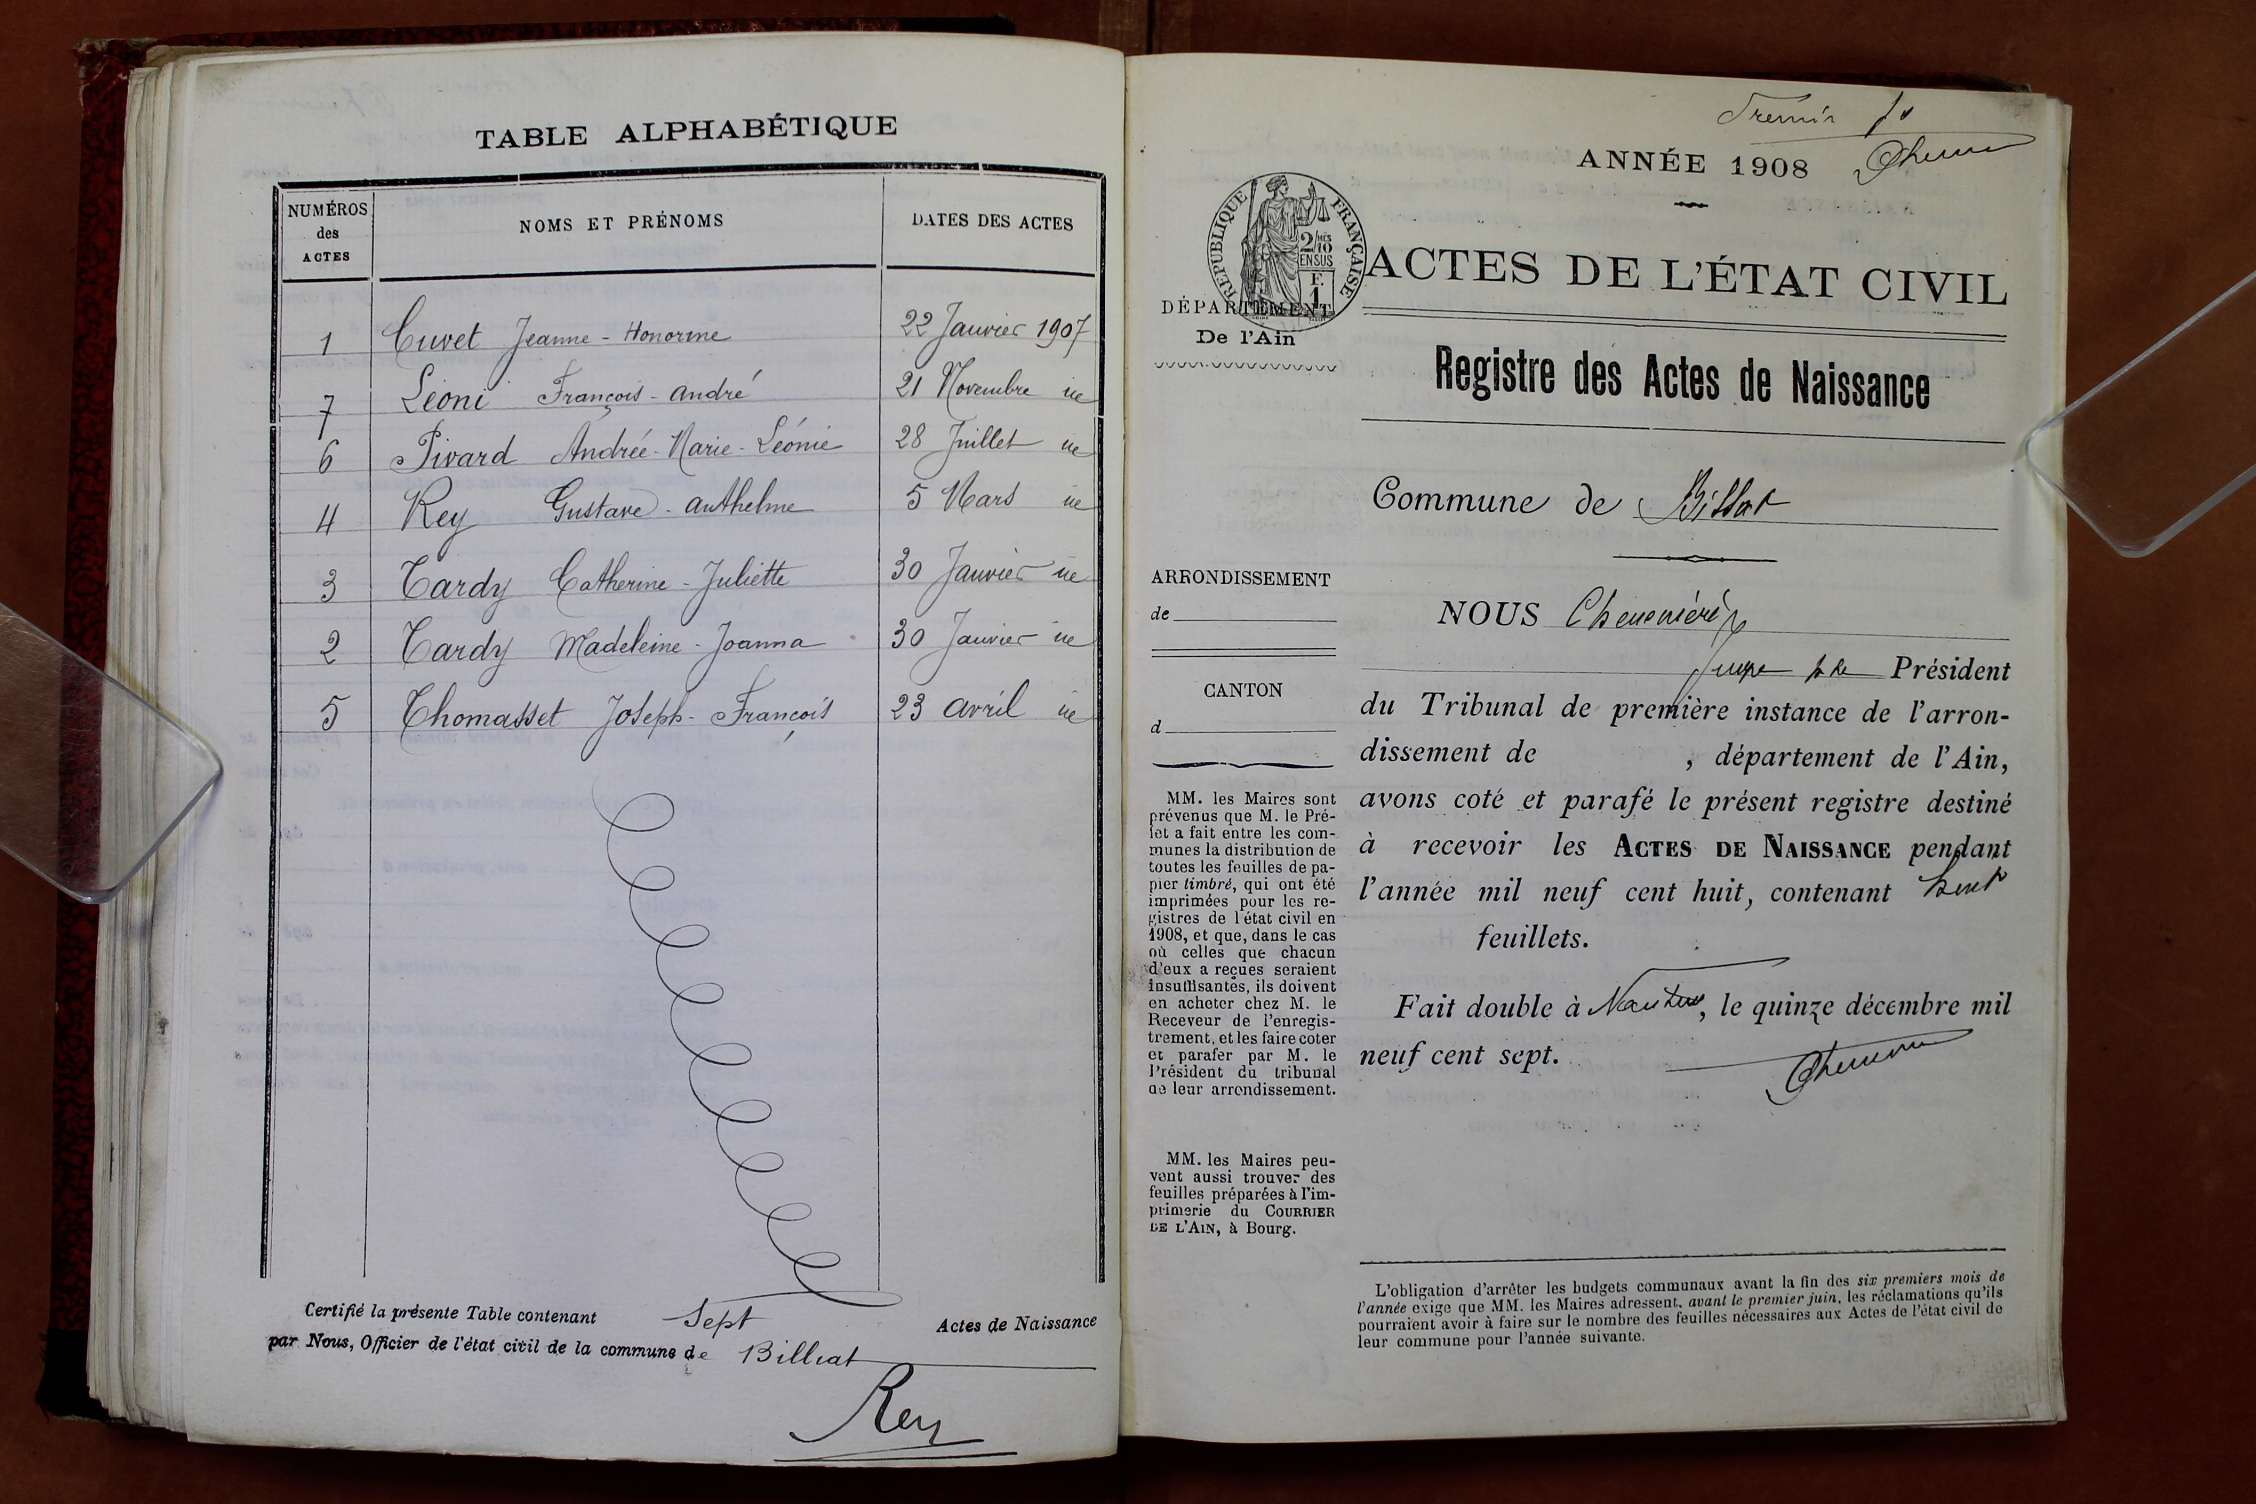 TABLE ALPHABÉTIQUE
NUMÉROS
des
ACTES
NOMS ET PRÉNOMS
DATES DES ACTES
1 Cuvet Jeanne - Honorine 22 Janvier 1907
7 Léoni François - André 21 Novembre
6 Pivard Andrée - Marie - Léonie 28 Juillet
4 Rey Gustave - Anthelme 5 Mars
3 Tardy Catherine - Juliette 30 Janvier
2 Tardy Madeleine - Joanna 30 Janvier
5 Thomasset Joseph - François 23 avril
Certifié la présente Table contenant Sept Actes de Naissance
par Nous, Officier de l'état civil de la commune de Billiat
Rey
ANNÉE 1908
RÉPUBLIQUE FRANÇAISE
2/10 EN SUS
F. 1
ACTES DE L'ÉTAT CIVIL
DÉPARTEMENT
De l'Ain
Registre des Actes de Naissance
Commune de Billiat
ARRONDISSEMENT
de
CANTON
d
MM. les Maires sont
prévenus que M. le Pré-
fet a fait entre les com-
munes la distribution de
toutes les feuilles de pa-
pier timbré, qui ont été
imprimées pour les re-
gistres de l'état civil en
1908, et que, dans le cas
où celles que chacun
d'eux a reçues seraient
insuffisantes, ils doivent
en acheter chez M. le
Receveur de l'enregis-
trement, et les faire coter
et parafer par M. le
Président du tribunal
de leur arrondissement.
MM. les Maires peu-
vent aussi trouver des
feuilles préparées à l'im-
primerie du COURRIER
DE L'AIN, à Bourg.
NOUS
Juge Président
du Tribunal de première instance de l'arron-
dissement de , département de l'Ain,
avons coté et parafé le présent registre destiné
à recevoir les ACTES DE NAISSANCE pendant
l'année mil neuf cent huit, contenant
feuillets.
Fait double à Nantua, le quinze décembre mil
neuf cent sept.
L'obligation d'arrêter les budgets communaux avant la fin des six premiers mois de
l'année exige que MM. les Maires adressent, avant le premier juin, les réclamations qu'ils
pourraient avoir à faire sur le nombre des feuilles nécessaires aux Actes de l'état civil de
leur commune pour l'année suivante.